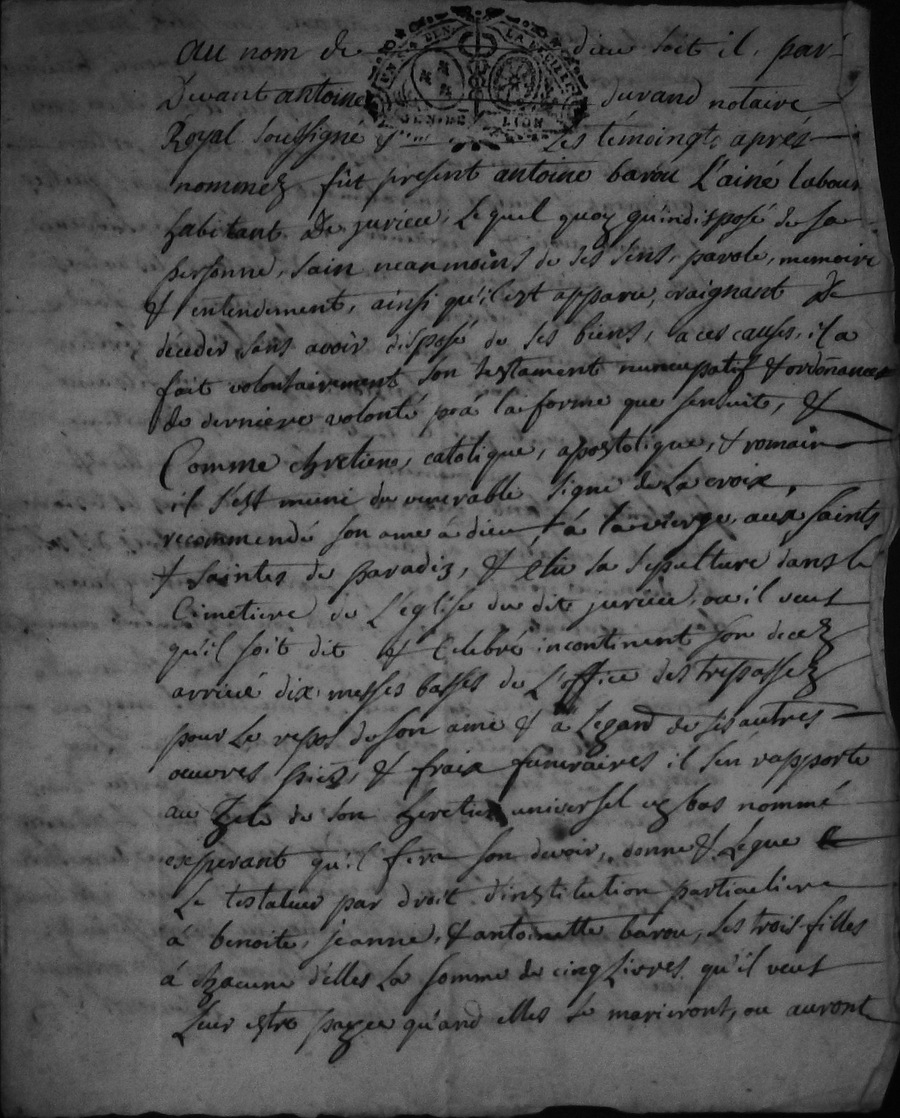 au nom de dieu soit il, par
Devant antoine durand notaire
Royal soussigné & les témoingts aprés
nommez, fût present antoine barou L'ainé labour
habitant de jurieu, Lequel quoy qu'indisposé de sa
personne, sain neanmoins de ses sens, parole, memoire
& entendement, ainsi qu'il est apparu, craignant De
déceder sans avoir disposé de ses biens, a ces causes, il a
fait volontairement son testament nuncupatif & ordonnance
de derniere volonté por la forme que sensuit, &
Comme chretien, catolique, apostolique, & romain
il s'est muni du venerable signe de La croix,
recommendé son ame à dieu, à la vierge, aux saints
& saintes de paradis, & elu sa sepulture dans le
Cimetiere de L'église du dit jurieu, ou il veut
qu'il soit dit & celebré incontinent son decez
arrivé dix messes basses de L'office des trepassez
pour Le repos de son ame & à Legard de ses autres
oeuvres piez, & fraix funéraires il s'en rapporte
au zele de son heretier universel cy bas nommé
esperant qu'il fera son devoir, donne & Legue
Le testateur par droit d'institution particuliere
à benoite, jeanne, & antoinette barou, ses trois filles
à chacune d'elles La somme de cinq Livres qu'il veut
Leur estre payée quand elles se marieront, ou auront
GEN DE LION